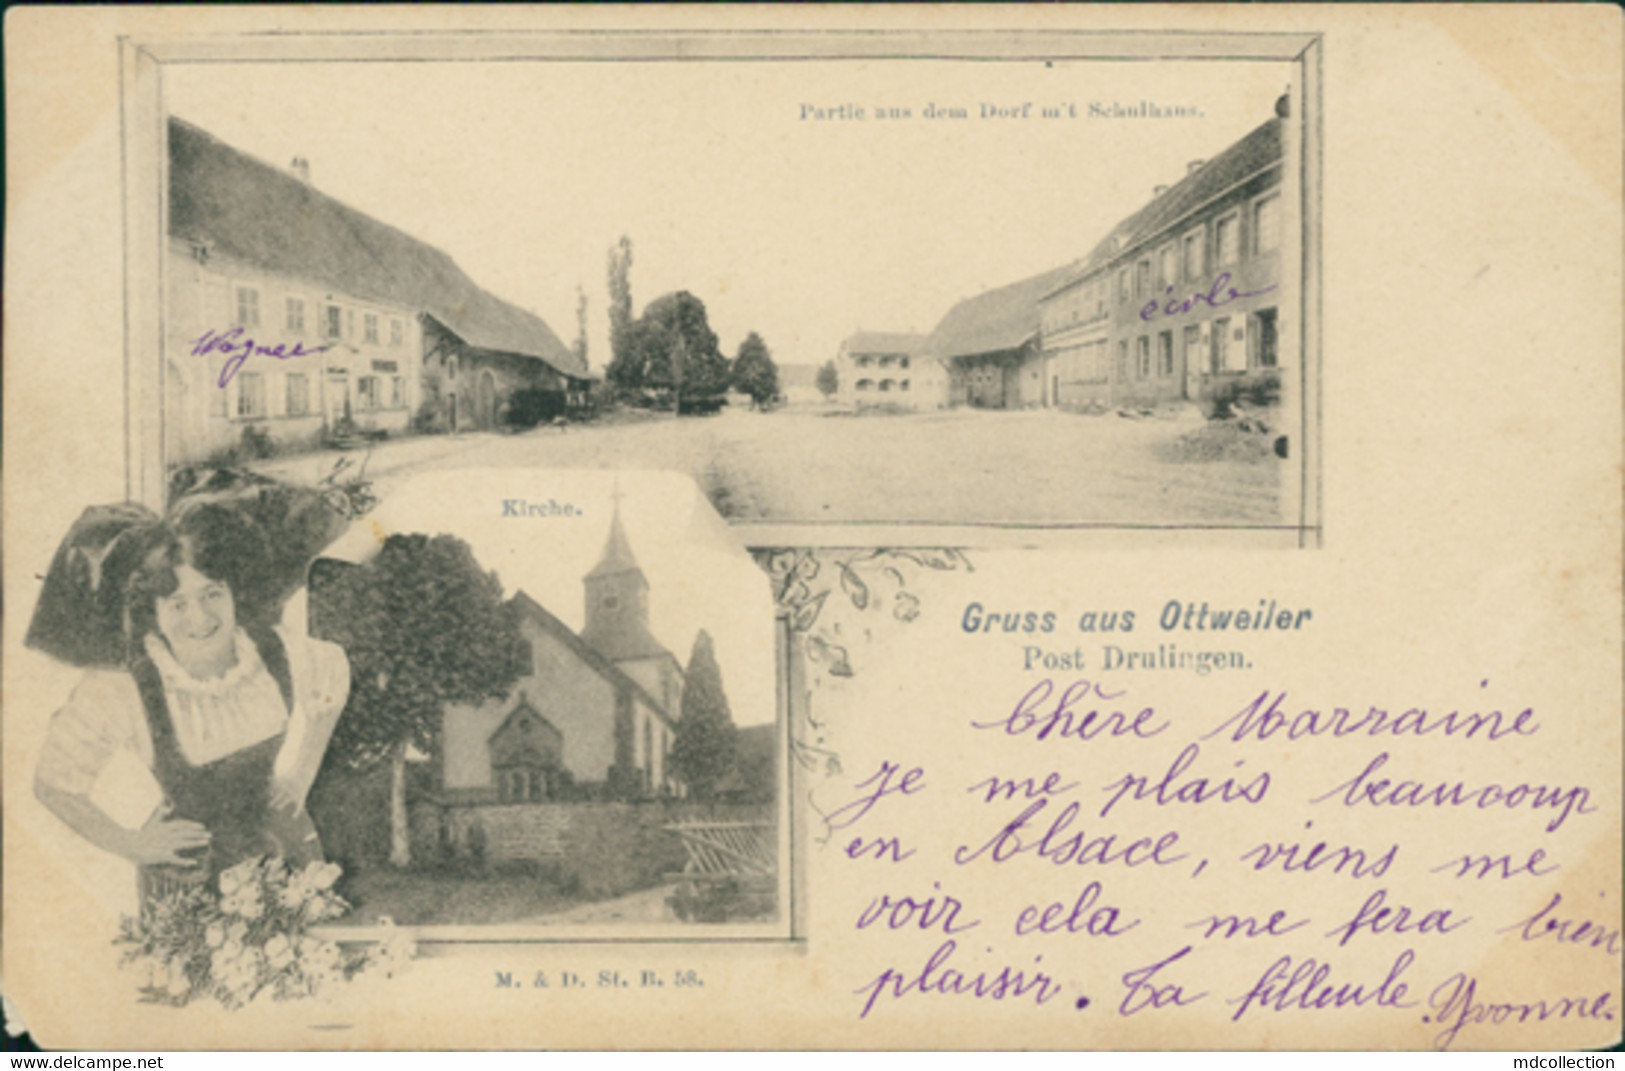 Partie aus dem Dorf mit Schulhaus.
école
Wagner
Kirche.
Gruss aus Ottweiler
Post Drulingen.
Chère Marraine
Je me plais beaucoup
en Alsace, viens me
voir cela me fera bien
plaisir. Ta filleule Yvonne.
M. & D. St. B. 58.
www.delcampe.net
mdcollection